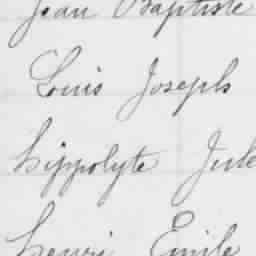 Jean Baptiste
Louis Joseph
hippolyte Jule
henri Emile